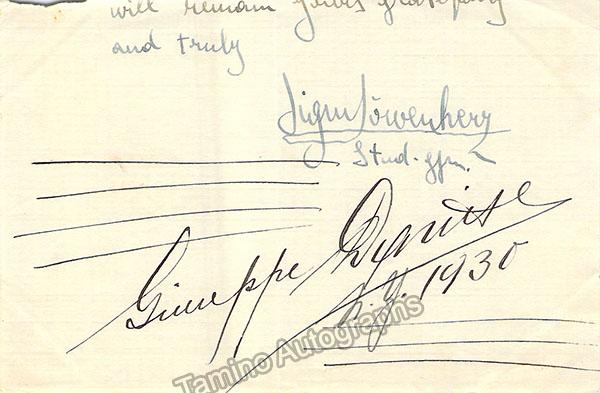 will remain yours gratefully
and truly
Sigm Löwenherz
Stud. gym.
Giuseppe Danise
N.Y. 1930
Tamino Autographs